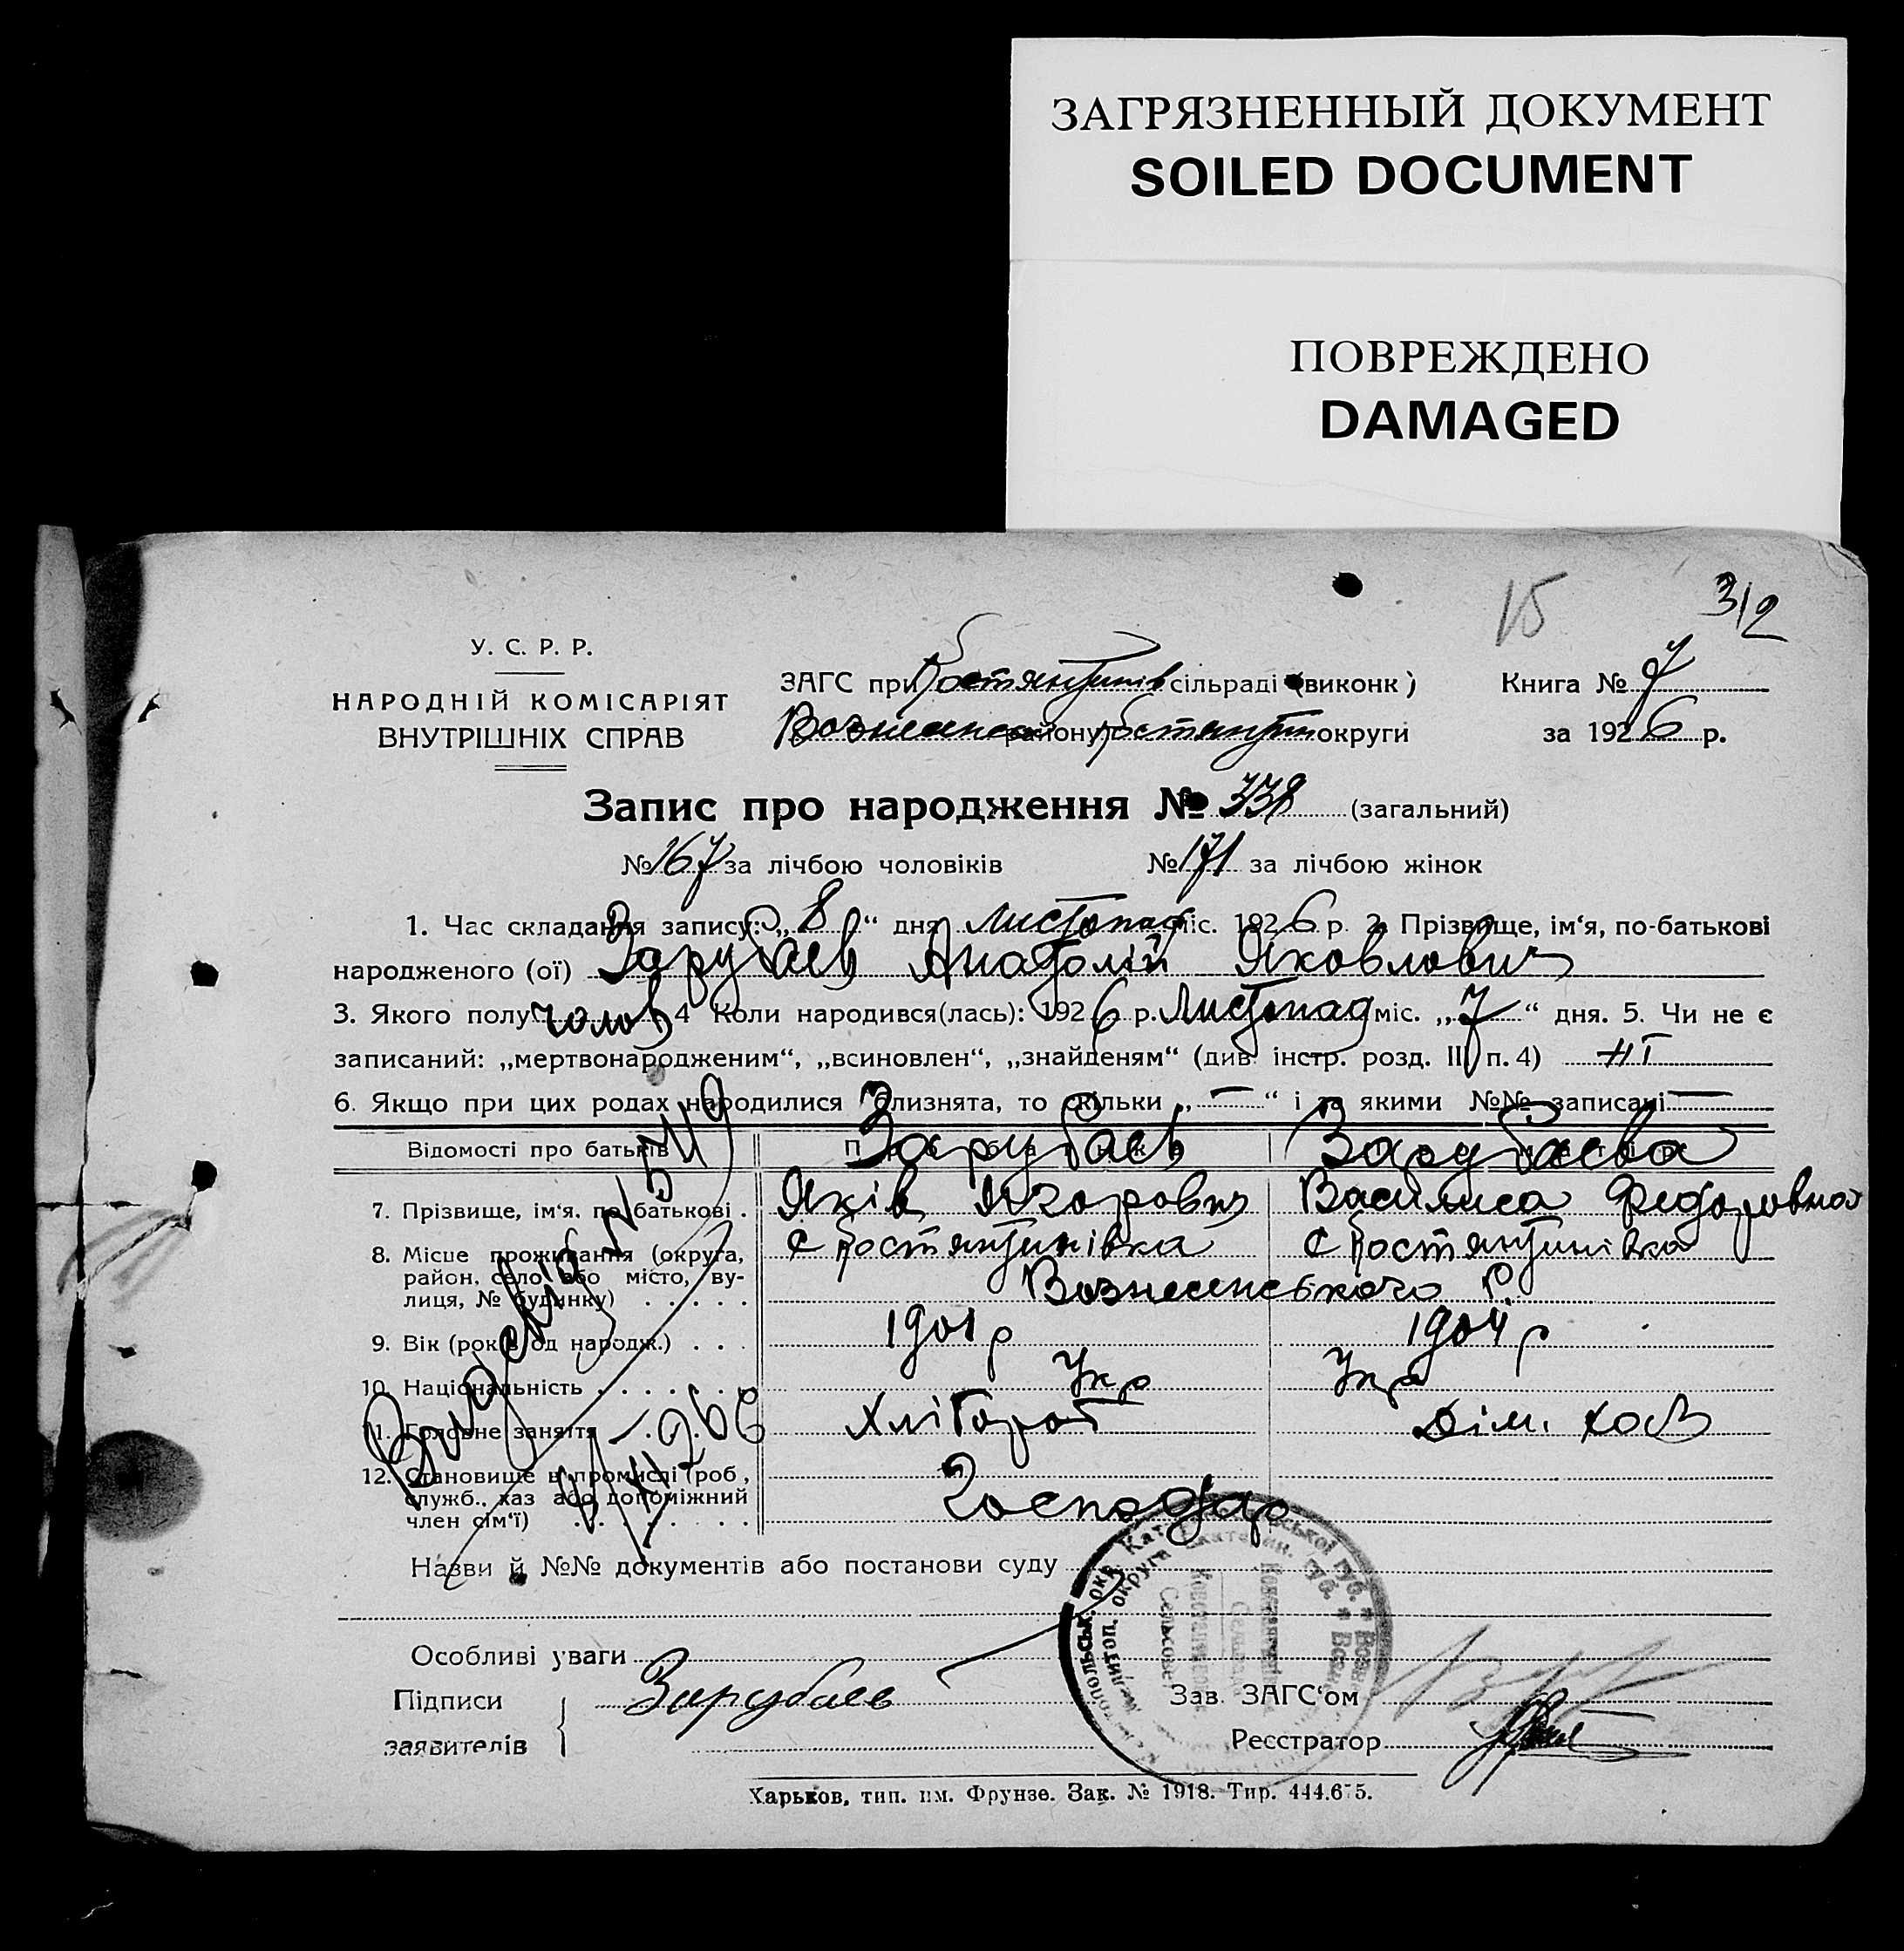 ЗАГРЯЗНЕННЫЙ ДОКУМЕНТ
SOILED DOCUMENT
ПОВРЕЖДЕНО
DAMAGED
15 312
У. С. Р. Р.
НАРОДНІЙ КОМІСАРІЯТ
ВНУТРІШНІХ СПРАВ
ЗАГС при Костянтинів сільраді (виконк)
району округи
Книга № 7
за 1926 р.
Запис про народження № 338 (загальний)
№ 167 за лічбою чоловіків № 171 за лічбою жінок
1. Час складання запису: „8“ дня Листопад міс. 1926 р. 2. Прізвище, ім‘я, по-батькові
народженого (ої) Зарубаев Анатолій Яковлович
3. Якого полу чолов 4 Коли народився(лась): 1926 р. Листопад міс. „7“ дня. 5. Чи не є
записаний: „мертвонародженим“, „всиновлен“, „знайденям“ (див. інстр. розд. III п. 4) ні
6. Якщо при цих родах народилися близнята, то скільки „—“ і за якими №№ записані —
Відомості про батьків Зарубаев Зарубаева
7. Прізвище, ім‘я, по батькові . Яків Василиса Федоровна
8. Місце проживання (округа, с Костянтинівка с Костянтинівка
район, село або місто, ву-
лиця, № будинку) . . . . . Вознесенського р.
9. Вік (рок од народж.) . . . 1901 р 1904 р
10. Національність . . . . . . . Укр Укр
11. Головне заняття Хлібороб Дім. хоз
12. Становище в промислі (роб., Господар
служб., хаз або допоміжний
член сім‘ї) . . . . . . . .
Назви й №№ документів або постанови суду
Особливі уваги
Підписи
заявителів
Зарубаев
Зав. ЗАГС‘ом
Реєстратор
Харьков, тип. им. Фрунзе. Зак. № 1918. Тир. 444.675.